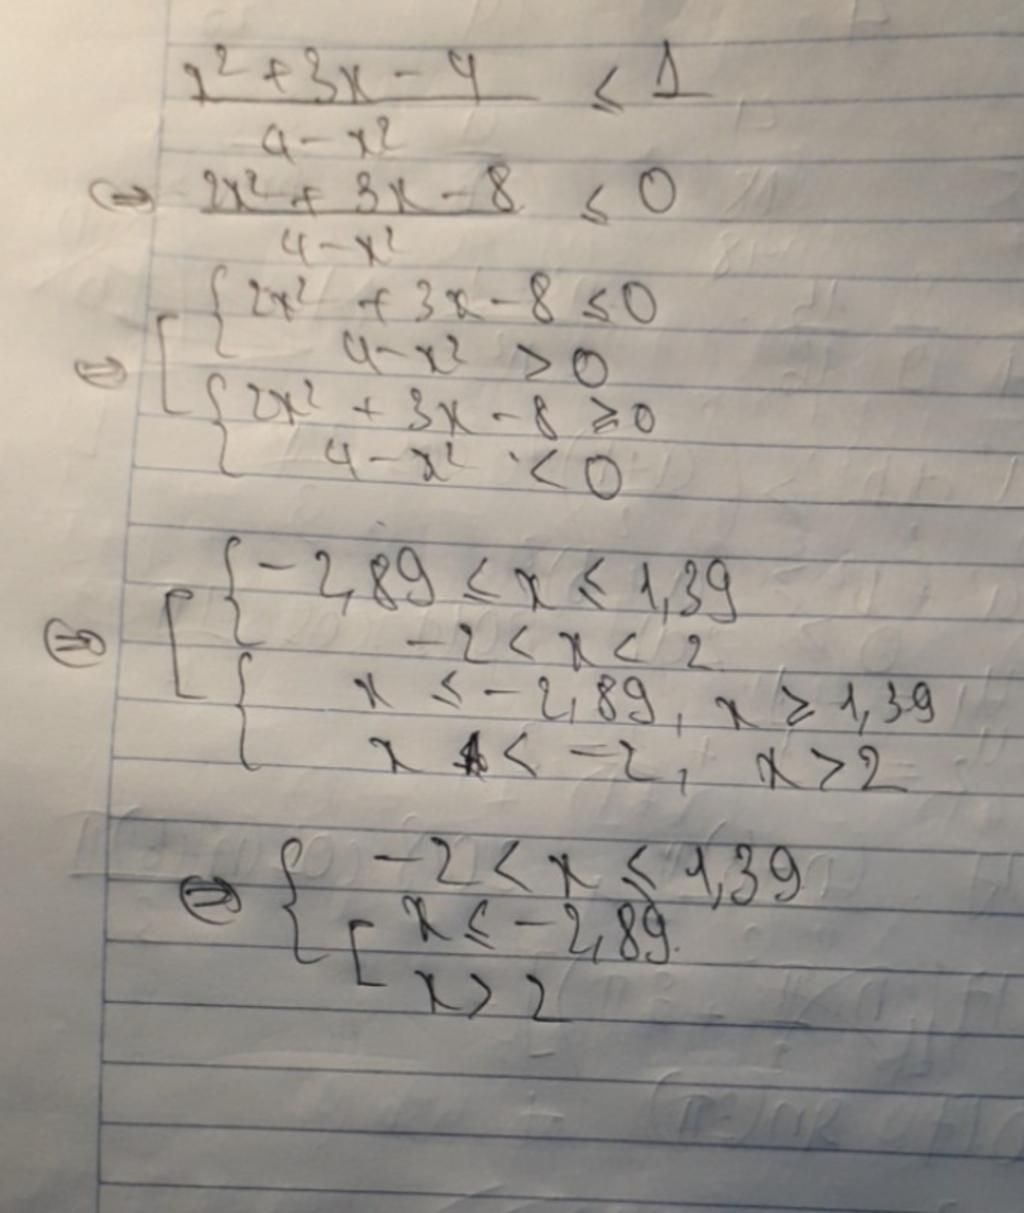 x² + 3x - 4 ≤ 1
4 - x²
⇔ 2x² + 3x - 8 ≤ 0
4 - x²
{ 2x² + 3x - 8 ≤ 0
⇔ [ 4 - x² > 0
{ 2x² + 3x - 8 ≥ 0
4 - x² < 0
{ -2,89 ≤ x ≤ 1,39
⇔ [ -2 < x < 2
{ x ≤ -2,89, x ≥ 1,39
x < -2, x > 2
⇔ { -2 < x ≤ 1,39
[ x ≤ -2,89
x > 2